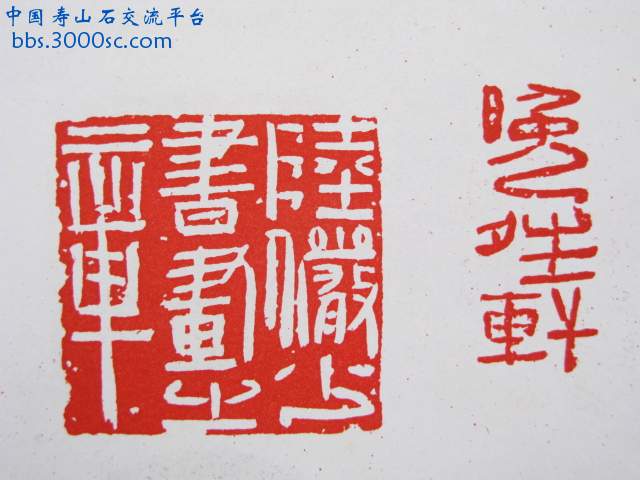 中国寿山石交流平台
bbs.3000sc.com
晚晴軒
陸儼少
書畫之
章